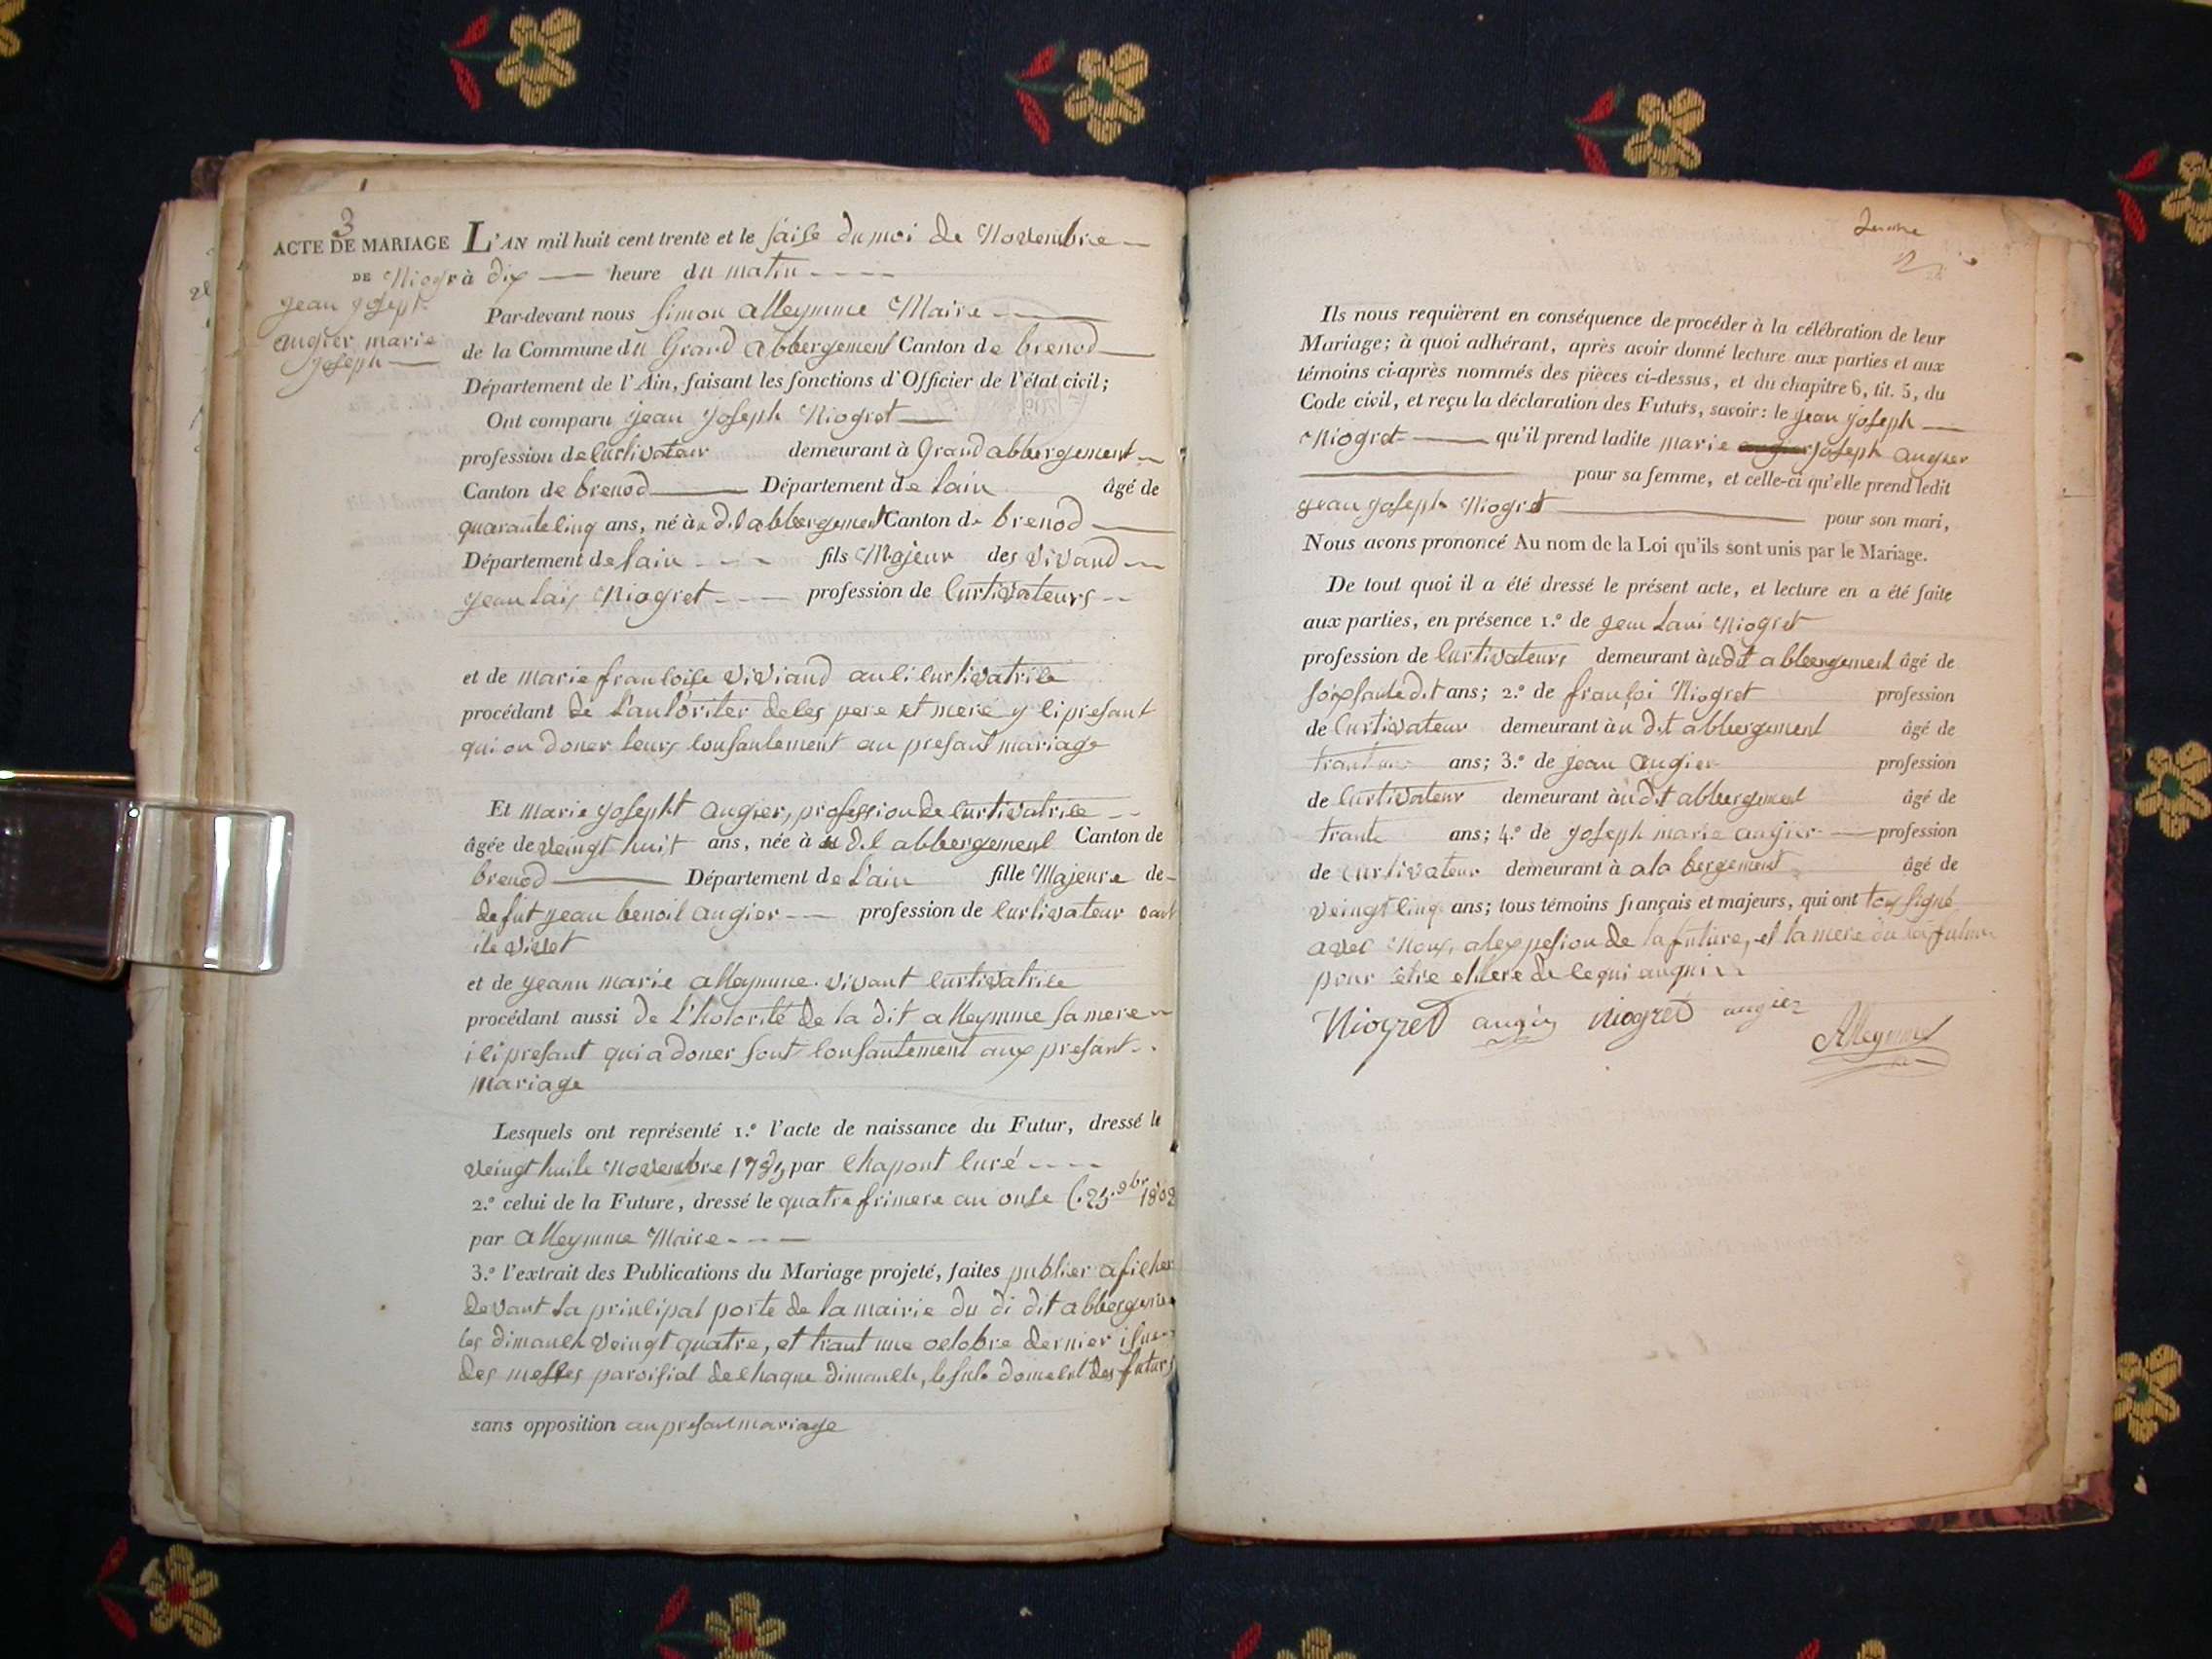 3
ACTE DE MARIAGE
DE Niogr
jean josept
augier marie
joseph
L'AN mil huit cent trente et le saise du moi de Novembre
à dix heure du matin
Par-devant nous simon alleymme Maire
de la Commune du Grand abbergement Canton de brenod
Département de l'Ain, faisant les fonctions d'Officier de l'état civil;
Ont comparu jean joseph Niogret
profession de Curtivateur demeurant à Grand abbergement
Canton de brenod Département de Lain âgé de
quarante cinq ans, né à u dit abbergement Canton de brenod
Département de Lain fils Majeur des vivand
jean Niogret profession de Curtivateurs
et de marie francoise viviand auci curtivatrice
procédant de L'autoriter de ces pere et mere y ci presant
qui on doner leurs consantement au presant mariage
Et marie josepht augier, profession de curtivatrice
âgée de veingt huit ans, née à u dit abbergement Canton de
brenod Département de Lain fille Majeure de
defut jean benoit augier profession de curtivateur
et de jeann marie alleymme vivant curtivatrice
procédant aussi de L'hotorité de la dit alleymme sa mere
ici presant qui a doner sont consantement aux presant
mariage
Lesquels ont représenté 1.º l'acte de naissance du Futur, dressé le
veingt huite Novembre par Chapont Curé
2.º celui de la Future, dressé le quatre frimere an onse (.25. 9br. 1802
par alleymme Maire
3.º l'extrait des Publications du Mariage projeté, faites publier aficher
devant la principal porte de la mairie du di dit abbergeme
les dimanch veingt quatre, et trant une octobre dernier
des messes paroisial de chaque dimanch, des futurs
sans opposition au presant mariage
Ils nous requièrent en conséquence de procéder à la célébration de leur
Mariage; à quoi adhérant, après avoir donné lecture aux parties et aux
témoins ci-après nommés des pièces ci-dessus, et du chapitre 6, tit. 5, du
Code civil, et reçu la déclaration des Futurs, savoir: le jean joseph
Niogret qu'il prend ladite marie augier joseph augier
pour sa femme, et celle-ci qu'elle prend ledit
jean joseph Niogret pour son mari,
Nous avons prononcé Au nom de la Loi qu'ils sont unis par le Mariage.
De tout quoi il a été dressé le présent acte, et lecture en a été faite
aux parties, en présence 1.º de jean Loui Niogret
profession de Curtivateurs demeurant à udit abbergement âgé de
soixsante dit ans; 2.º de fransoi Niogret profession
de Curtivateur demeurant à u dit abbergement âgé de
ans; 3.º de jean augier profession
de Curtivateur demeurant à u dit abbergement âgé de
trante ans; 4.º de joseph marie augier profession
de Curtivateur demeurant à ala bergement âgé de
veingt cinq ans; tous témoins français et majeurs, qui ont tous signé
avec nous, alexpesion de la future, et la mere de la future
pour être
Niogret augier niogret augier
Alleymme